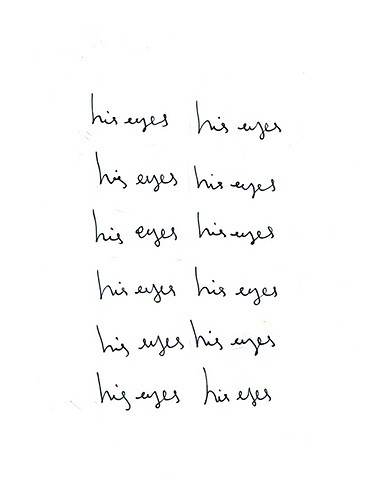 his eyes his eyes
his eyes his eyes
his eyes his eyes
his eyes his eyes
his eyes his eyes
his eyes his eyes